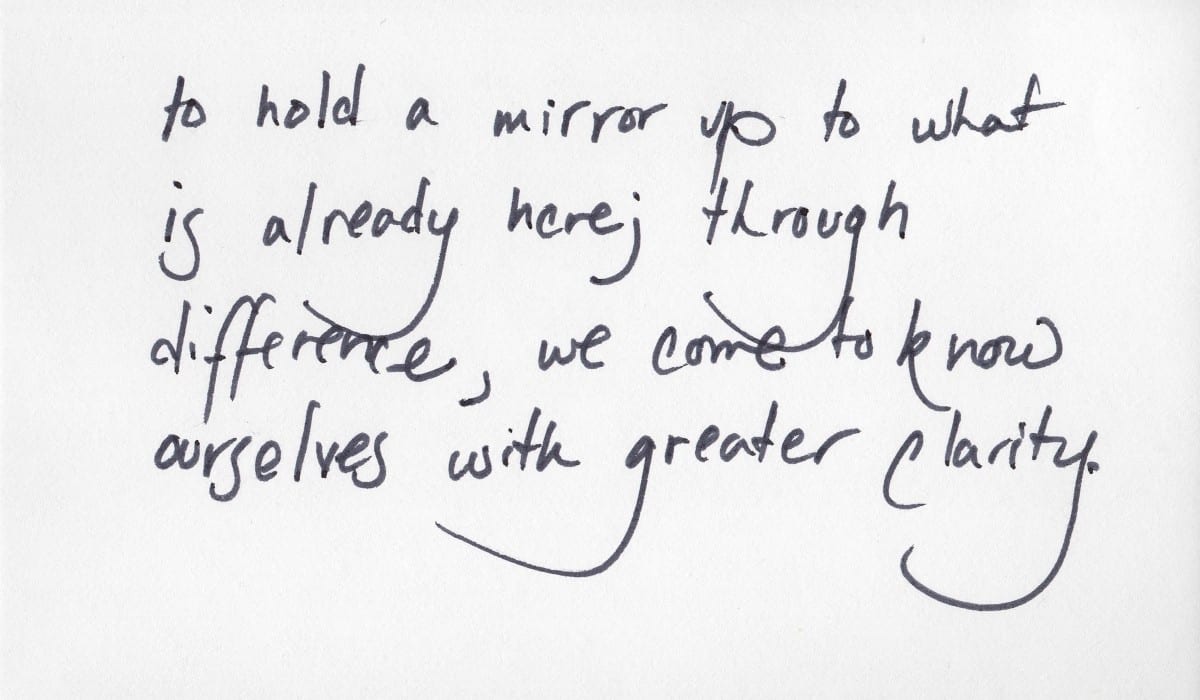 to hold a mirror up to what
is already here; through
difference, we come to know
ourselves with greater clarity.